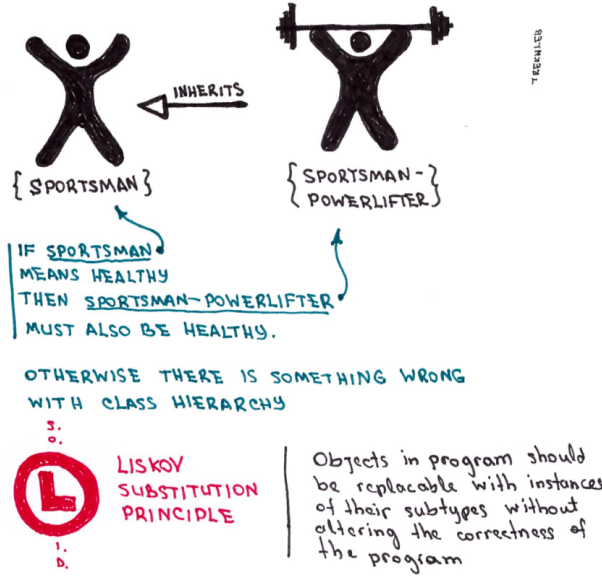 INHERITS
TREKHLEB
{ SPORTSMAN }
{ SPORTSMAN-
POWERLIFTER }
IF SPORTSMAN
MEANS HEALTHY
THEN SPORTSMAN-POWERLIFTER
MUST ALSO BE HEALTHY.
OTHERWISE THERE IS SOMETHING WRONG
WITH CLASS HIERARCHY
S.
O.
L
I.
D.
LISKOV
SUBSTITUTION
PRINCIPLE
Objects in program should
be replacable with instances
of their subtypes without
altering the correctness of
the program